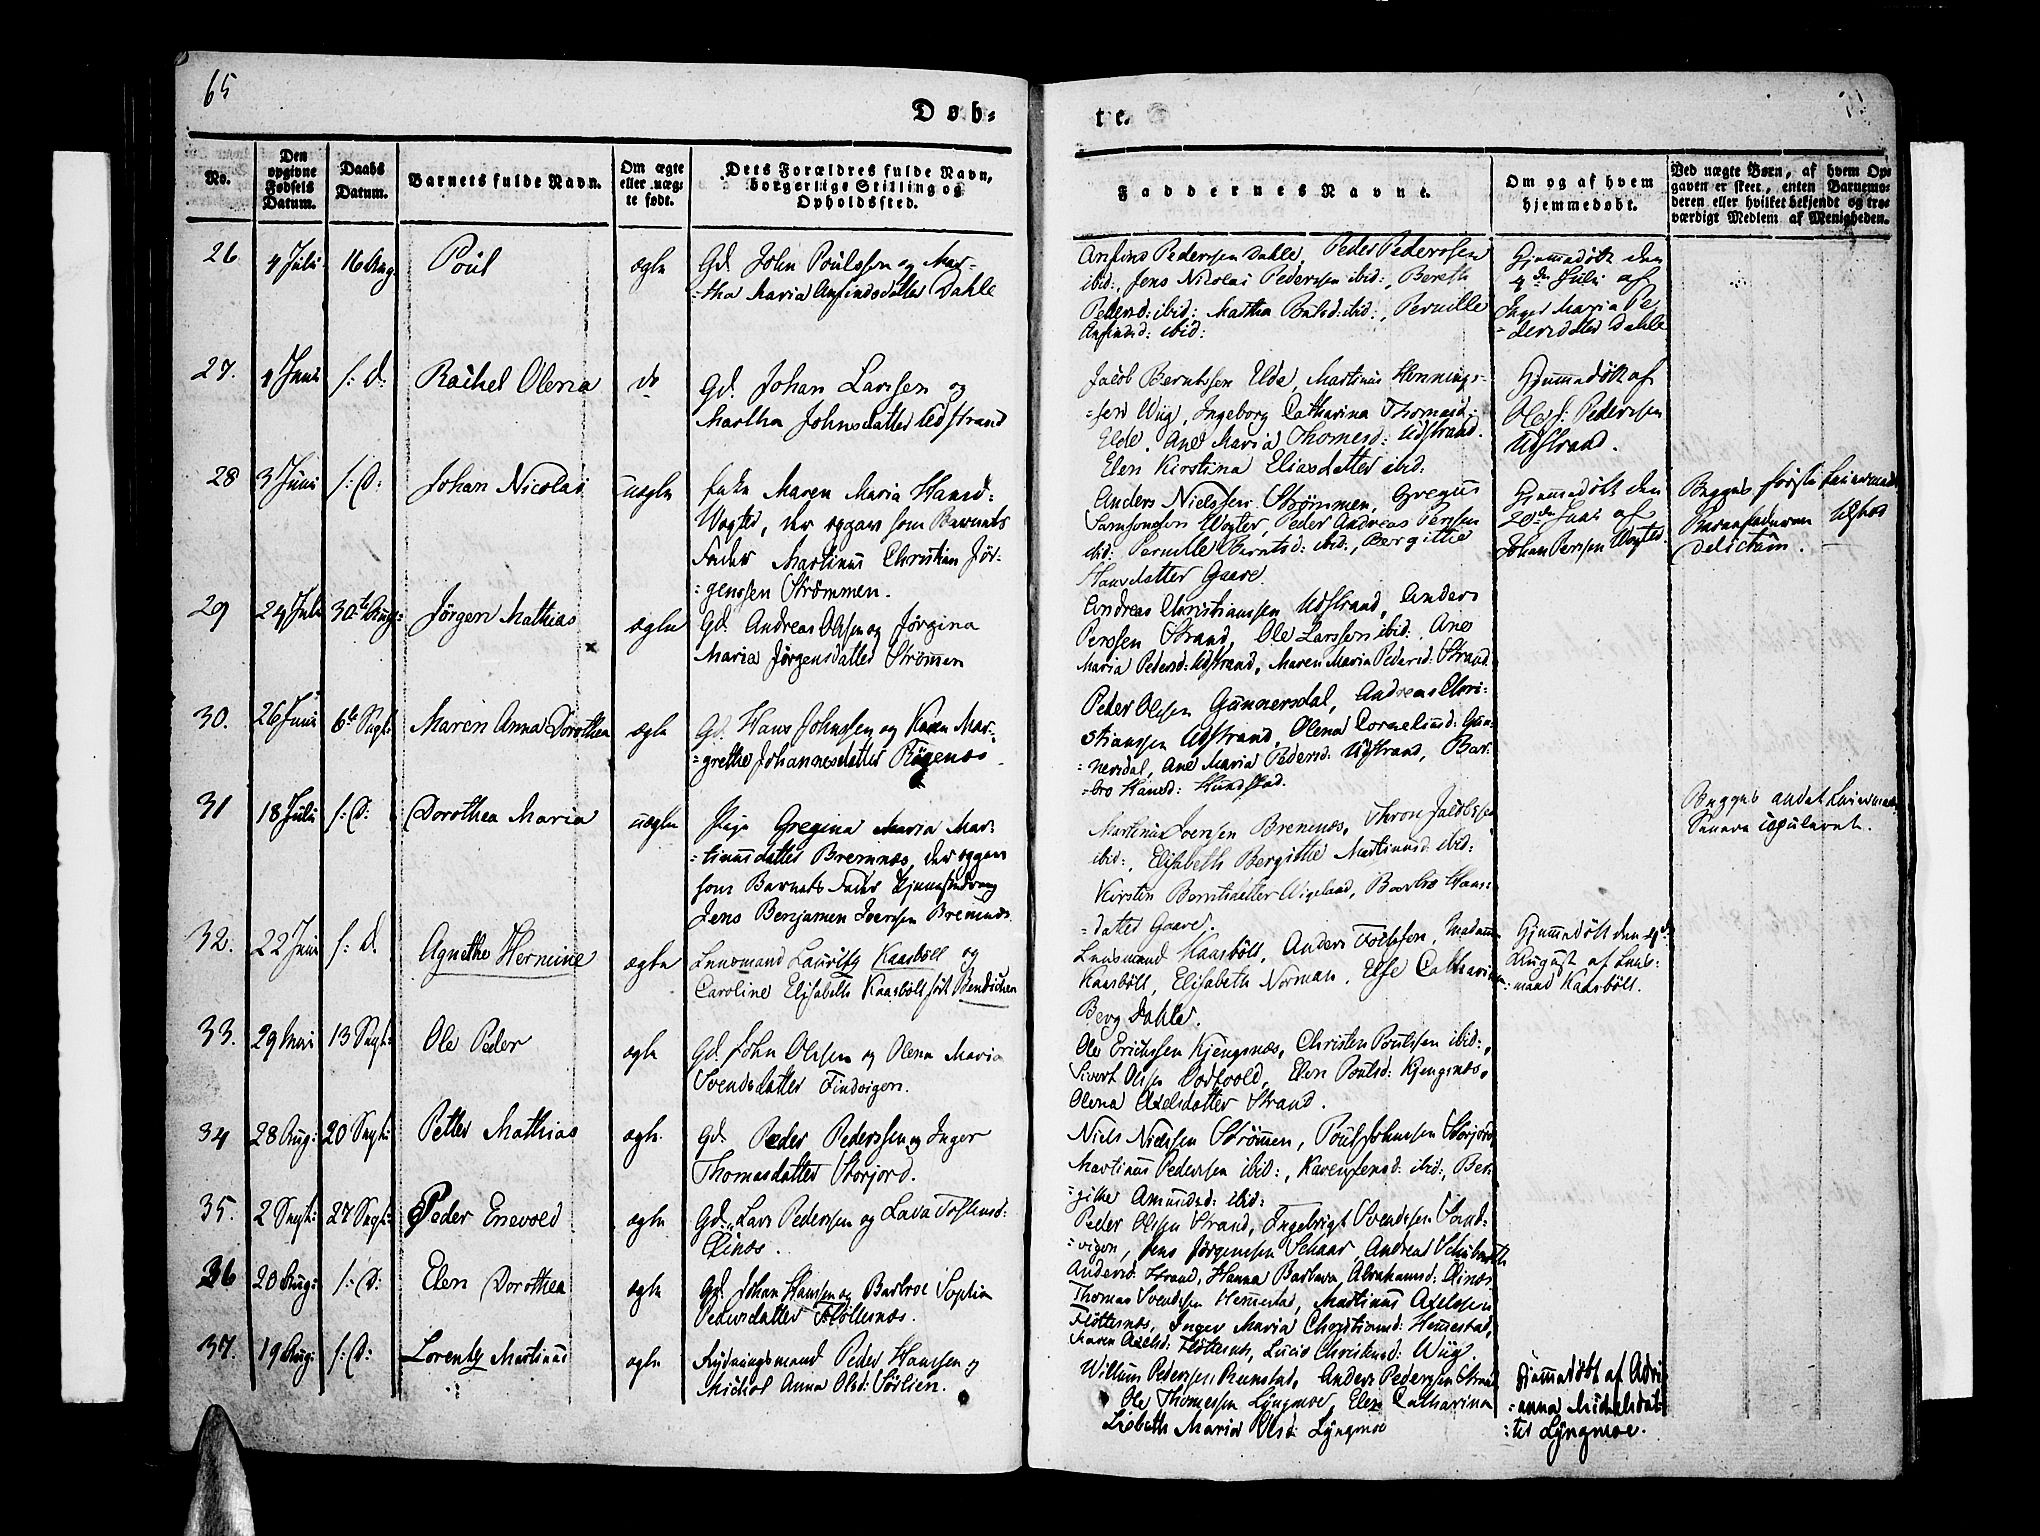 65
Døb-
te.
No.
Den
opgivne
Fødsels
Datum.
Daabs
Datum.
Barnets fulde Navn.
Om ægte
eller uæg-
te født.
Dets Forældres fulde Navn,
borgerlige Stilling og
Opholdssted.
Faddernes Navne.
Om og af hvem
hjemmedøbt.
Ved uægte Børn, af hvem Op-
gaven er skeet, enten Barnemo-
deren eller hvilket bekjendt og tro-
værdigt Medlem af Menigheden.
26 4 Juli 16 Aug Poul ægte Gd. John Poulssen og Mar-
=tha Maria Anfindsdatter Dahle
Anfind Pederssen Dahle, Peder Pederssen
ibid:, Jens Nicolai Pederssen ibid:, Bereth
Pedersd: ibid: Martha ibid:, Pernille
Anfindsd: ibid:
Hjemmedøbt den
4de Juli af
Inger Maria Pe
=dersdatter Dahle
27. 4 Juni s: D: Rachel Olena do Gd. Johan Larssen og
Martha Johnsdatter Udstrand
Jacob Berntssen Elde, Martinus Hennings-
=sen Wiig, Ingeborg Catharina Thomasd:
Elde, Ane Maria Thomesd: Udstrand.
Elen Kirstina Eliasdatter ibid.
Hjemmedøbt af
Pederssen
Udstrand.
28 3 Juni s: D: Johan Nicolai uægte Enke Maren Maria Hansd:
Wogter, der opgav som Barnets
Fader Martinus Christian Jør-
=genssen Strømmen.
Anders Nielssen Strømmen, Gregus
Samsonssen Wogter, Peder Andreas Perssen
ibid: Pernille Berntsd: ibid:, Bergitte
Hansdatter Gaare.
Hjemmedøbt den
20de Juni af
Johan Perssen Wogter.
Begges første Leiermaal
Barnefaderen
Delictum.
29 24 Juli 30te Aug: Jörgen Mathias ægte Gd. Andreas Olssen og Jørgina
Maria Jørgensdatter Strømmen
Andreas Christianssen Udstrand, Anders
Perssen Strand, Ole Larssen ibid: Ane
Maria Pedersd: Udstrand, Maren Maria Pedersd: Strand
30. 26 Juni 6te Sept: Maren Anna Dorothea ægte Gd. Hans Johnssen og Karen Mar-
=grethe Johannesdatter Rögenæs
Peder Olssen Gunnersdal, Andreas Chri-
stianssen Udstrand, Olena Corneliusd: Gun-
=nersdal, Ane Maria Pedersd: Udstrand, Bar-
=bro Hansd: Hundstad.
31 18 Juli s: D: Dorothea Maria uægte Pige Gregina Maria Mar-
=tinusdatter Bremnæs, der opgav
som Barnets Fader
Jens Benjamen Iverssen Bremnæs
Martinus Iverssen Bremnæs, Thron Jacobssen
ibid:, Elisabeth Bergithe Martinusd: ibid:
Kirsten Berntsdatter Wigeland, Barbro Hans-
=datter Gaare.
Begges andet Leiermaal
Senere copuleret.
32. 22 Juni s: D. Agnethe Hermine ægte Lensmand Lauritz Kaasböll og
Caroline Elisabeth Kaasböll fød Bendichen
Lensmand Kaasböll, Anders , Madame
Kaasböll, Elisabeth Norman, Else Catharina
Berg Dahle.
Hjemmedøbt den 4de
August af Lens-
=mand Kaasböll.
33. 29 Mai 13 Sept: Ole Peder ægte Gd. John Olssen og Olena Maria
Svendsdatter Findvigen.
Ole Erichssen Kjengsnæs, Christen Poulssen ibid:,
Sivert Olssen , Elen Poulsd: Kjengsnæs,
Olena Axelsdatter Strand.
34 28 Aug: 20 Sept: Petter Mathias ægte Gd. Peder Pederssen og Inger
Thomasdatter Storjord.
Niels Nielssen Strömmen, Poul Johnssen Storjord
Martinus Pederssen ibid:, Karen Jensd: ibid:, Ber-
=githe Amundsd: ibid:
35. 2 Sept: 27 Sept: Peder Enevold ægte Gd. Lars Pederssen og Lava Toftensd:
Elinæs.
Peder Olssen Strand, Ingebrigt Svendssen Sand-
=vigen, Jens Jörgenssen Schaar, Andrea
Andersd: Strand, Hanna Barbara Abrahamsd: Elinæs
36 20 Aug: s: D: Elen Dorothea ægte Gd. Johan Hanssen og Barbroe Sophia
Pedersdatter Flöttenæs.
Thomas Svendssen Hemmestad, Martinus Axelssen
Flöttenæs, Inger Maria Christiansd: Hemmestad,
Maren Axelsd: Flöttenæs, Lucie Christensd: Wiig.
37. 19 Aug: s: D: Lorentz Martinus ægte Rydningsmand Peder Hanssen og
Michol Anna Olsd: Sörlien.
Willum Pederssen Renstad, Anders Pederssen Strand
Ole Thomessen Lyngmoe, Elen Catharina
Lisbeth Maria Olsd: Lyngmoe
Hjemmedøbt af Adri-
=anna Michelsdat-
:ter Lyngmoe.